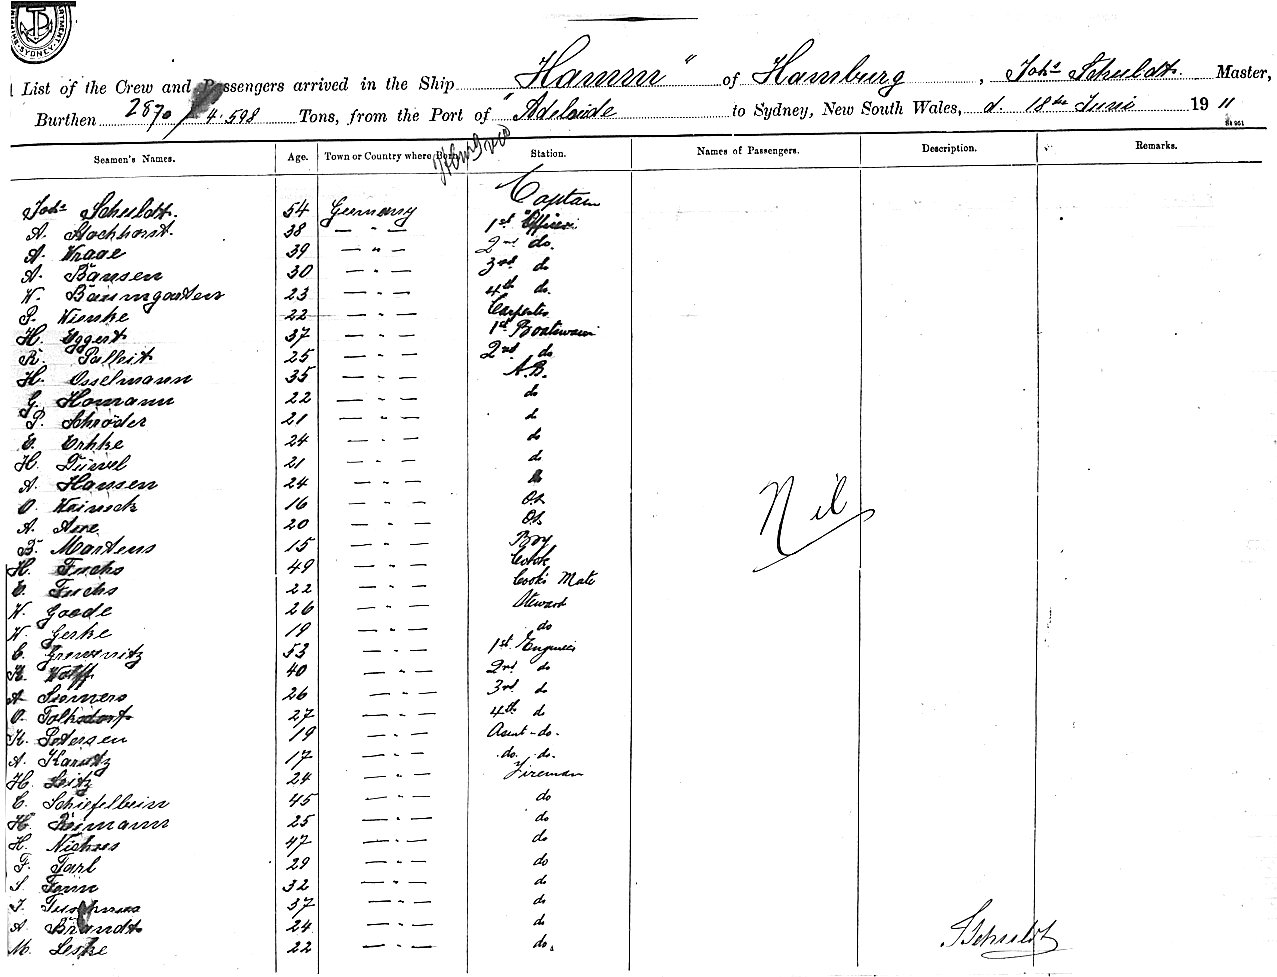 SYDNEY
List of the Crew and Passengers arrived in the Ship "Hamm" of Hamburg, Johs Schuldt. Master,
Burthen 2870/4598 Tons, from the Port of Adelaide to Sydney, New South Wales, d. 18th Juni 1911
Seamen's Names. Age. Town or Country where Born. Station. Names of Passengers. Description. Remarks.
Johs Schuldt. 54 Germany Captain
A. Stockhorst. 38 — " — 1st Officer
A. 39 — " — 2nd do.
A. Bansen 30 — " — 3rd do
W. Baumgarten 23 — " — 4th do.
P. Wienke 22 — " — Carpenter
H. Eggert 37 — " — 1st Boatswain
R. 25 — " — 2nd do
H. Osselmann 35 — " — A.B.
G. Homann 22 — " — do
P. Schröder 21 — " — do
24 — " — do
H. 21 — " — do
A. Hansen 24 — " — do
O. 16 — " — O.S.
A. 20 — " — O.S.
B. Martens 15 — " — Boy
H. Fuchs 49 — " — Cook
E. Fuchs 22 — " — Cooks Mate
W. Goede 26 — " — Steward
W. Gerke 19 — " — do
C. 53 — " — 1st Engineer
K. Wolff 40 — " — 2nd do
A. Siemers 26 — " — 3rd do
O. Tolksdorf 27 — " — 4th do
K. Petersen 19 — " — Assnt. do.
A. Karutz 17 — " — do. do.
H. Seitz 24 — " — Fireman
C. Schiefelbein 45 — " — do
H. Reimann 25 — " — do
H. 47 — " — do
F. Tarl 29 — " — do
S. 32 — " — do
J. 37 — " — do
A. Brandt 24 — " — do
M. Leske 22 — " — do.
Nil
JSchuldt